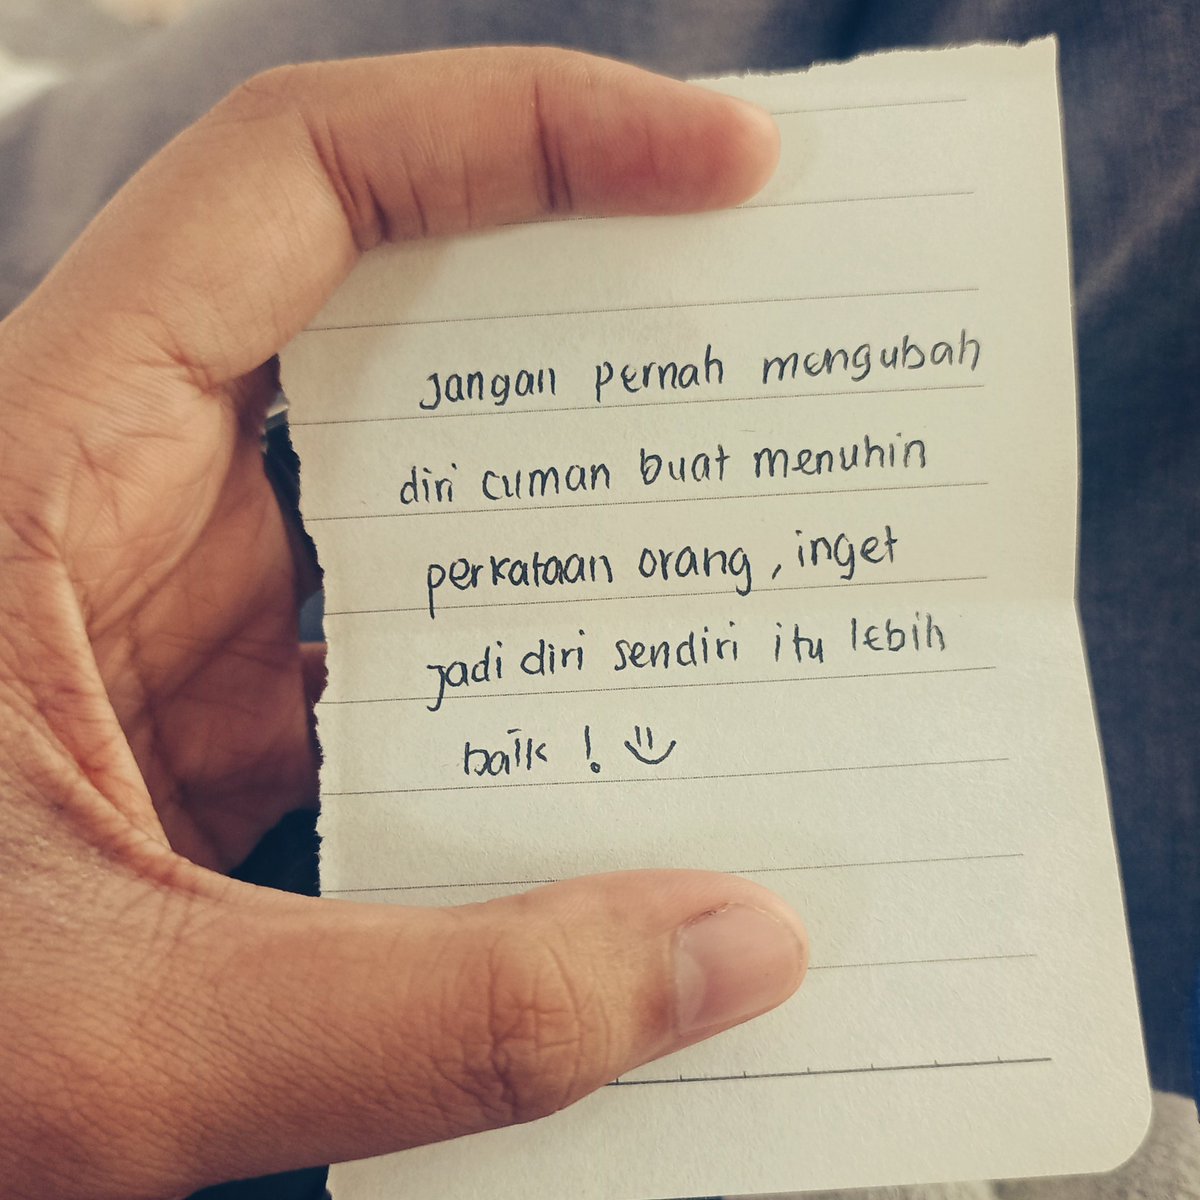 Jangan pernah mengubah
diri cuman buat menuhin
perkataan orang, inget
jadi diri sendiri itu lebih
baik !